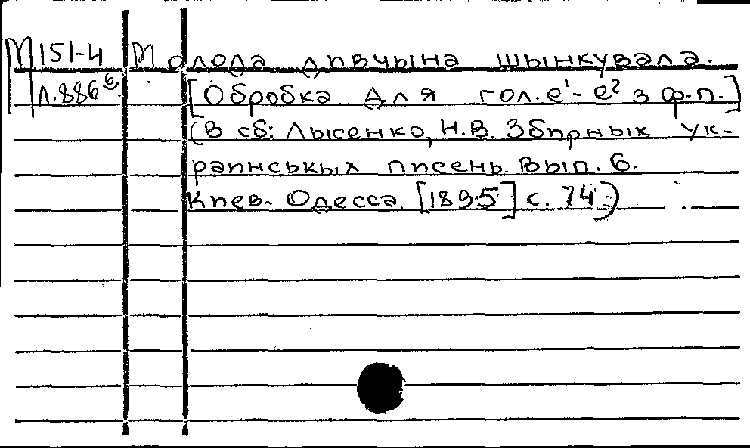 М 151-4 Молода дивчына шынкувала.
Л.886 б [Обробка для гол. е¹-е² з ф.п.]
(В сб: Лысенко, Н.В. Збирнык ук-
раинськых писень. Вып. 6.
Киев-Одесса. [1895] с. 74.)